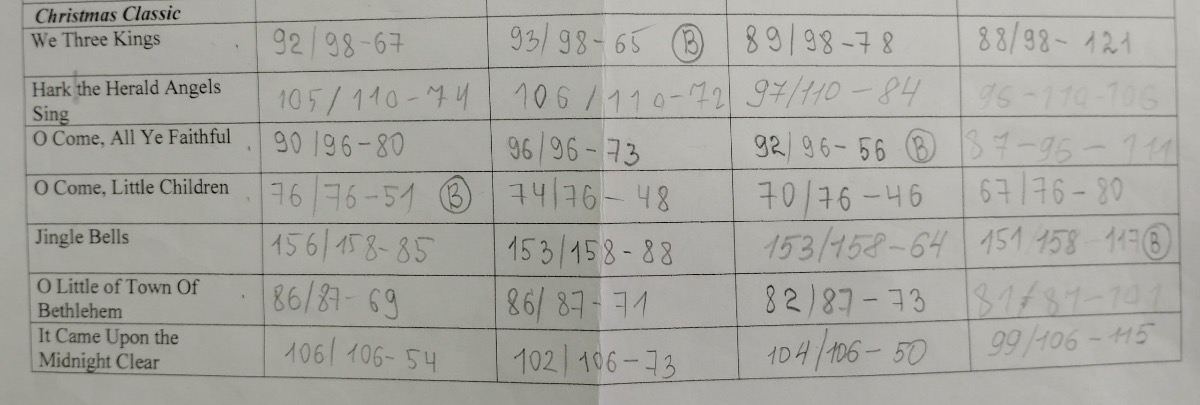 Christmas Classic
We Three Kings 92/98-67 93/98-65 B 89/98-78 88/98-121
Hark the Herald Angels
Sing 105/110-74 106/110-72 97/110-84 96-110-106
O Come, All Ye Faithful 90/96-80 96/96-73 92/96-56 B 87-96-111
O Come, Little Children 76/76-51 B 74/76-48 70/76-46 67/76-80
Jingle Bells 156/158-85 153/158-88 153/158-64 151/158-117 B
O Little of Town Of
Bethlehem 86/87-69 86/87-71 82/87-73
It Came Upon the
Midnight Clear 106/106-54 102/106-73 104/106-50 99/106-115